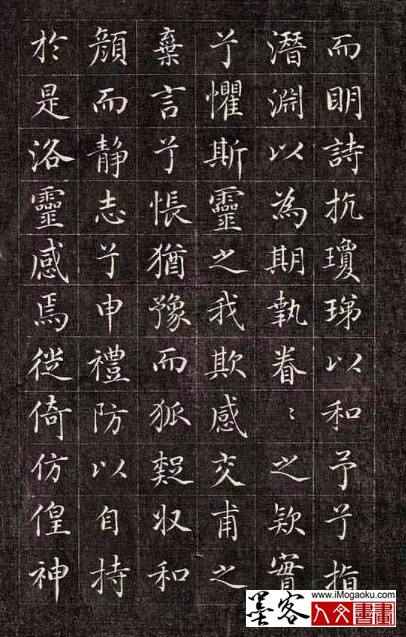 而眀詩抗瓊珶以和予兮指
潛淵以為期執眷〻之欵實
兮懼斯靈之我欺感交甫之
棄言兮悵猶豫而狐疑収和
顏而静志兮申禮防以自持
於是洛靈感焉徙倚仿偟神
www.iMogaoku.com
墨客
人文書畫